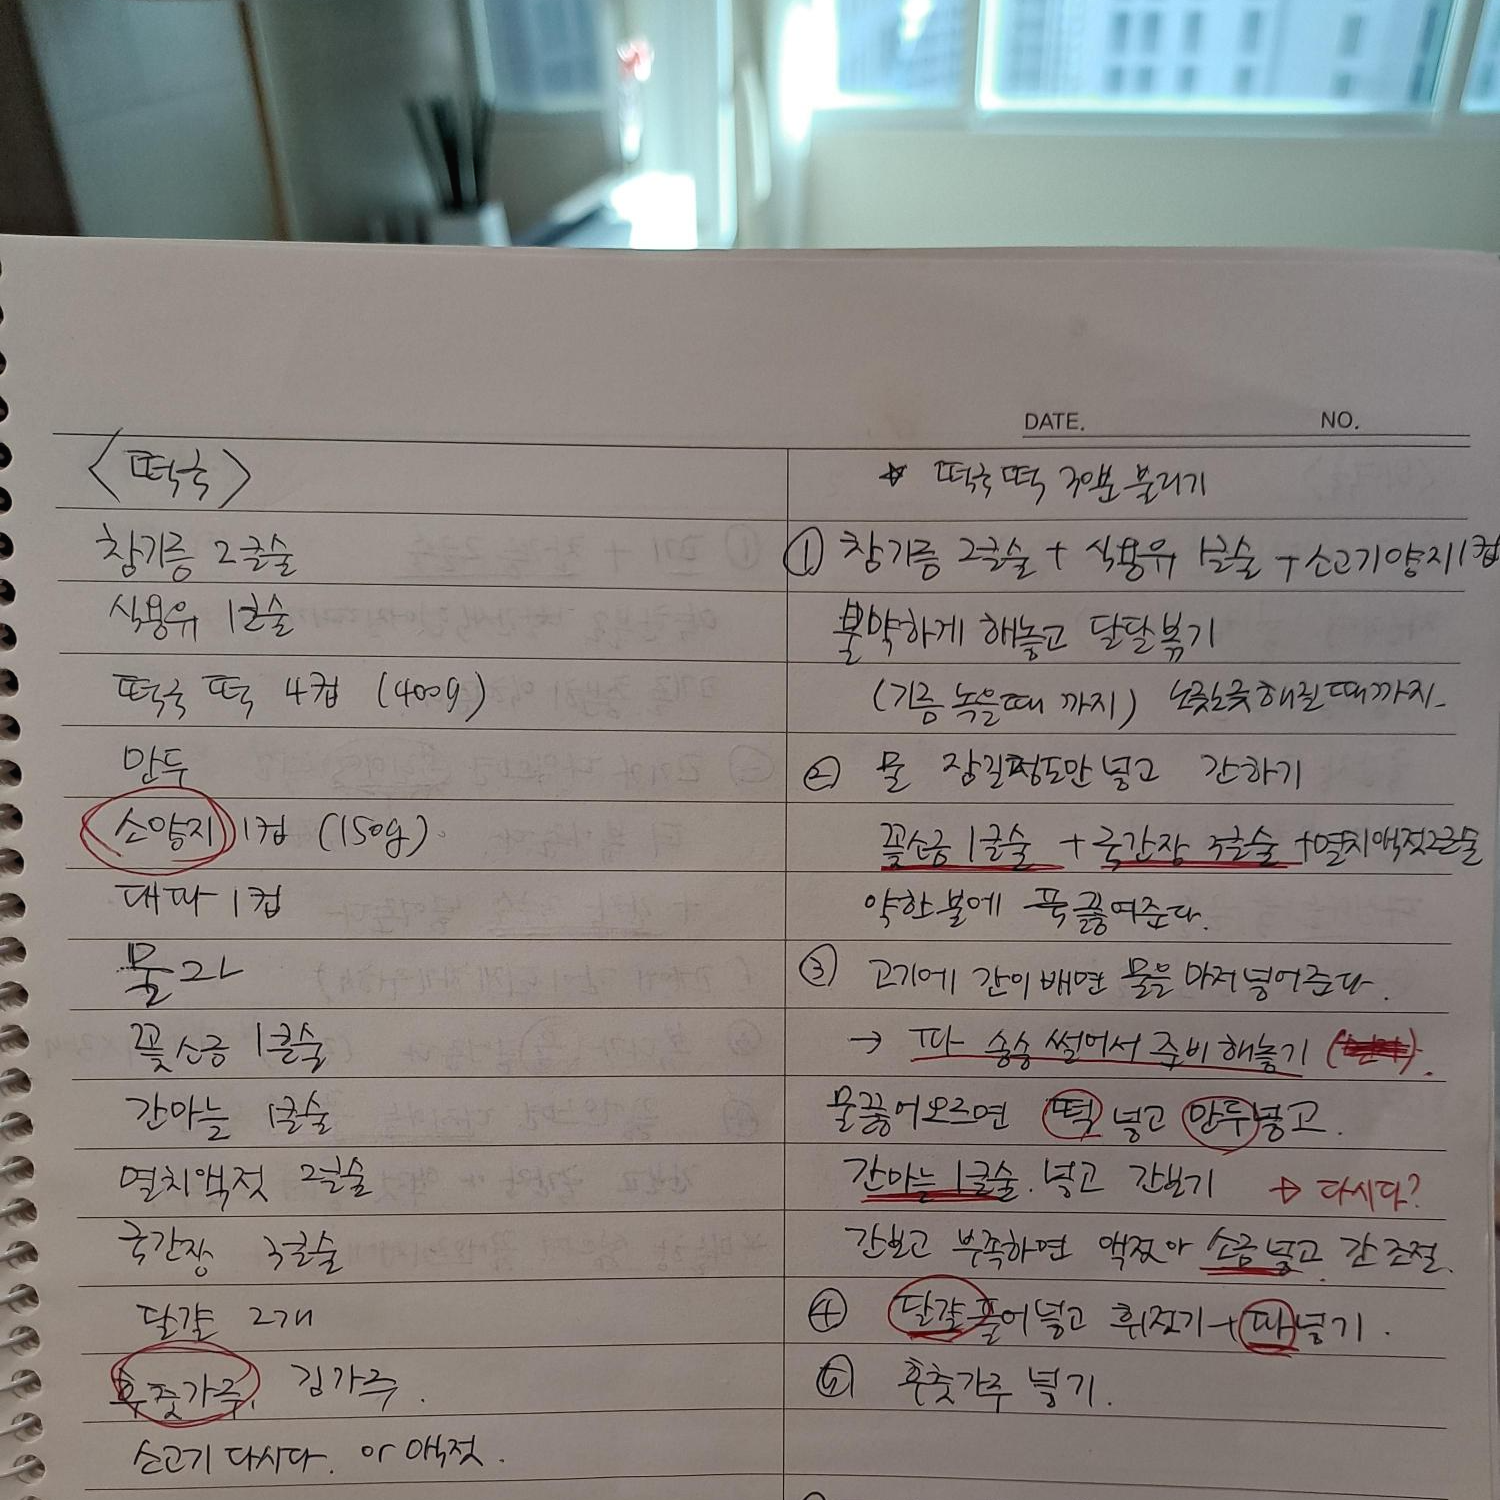 DATE. NO.
<떡국>
참기름 2큰술
식용유 1큰술
떡국 떡 4컵 (400g)
만두
소양지 1컵 (150g).
대파 1컵
물 2L
꽃소금 1큰술
간마늘 1큰술
멸치액젓 2큰술
국간장 3큰술
달걀 2개
후춧가루, 김가루.
소고기 다시다. or 액젓.
☆ 떡국떡 30분 불리기
① 참기름 2큰술 + 식용유 1큰술 + 소고기양지 1컵
불약하게 해놓고 달달볶기
(기름 녹을때 까지) 노릇노릇해질때까지.
② 물 잠길정도만 넣고 간하기
꽃소금 1큰술 + 국간장 3큰술 + 멸치액젓2큰술
약한불에 푹 끓여준다.
③ 고기에 간이 배면 물을 마저 넣어준다.
→ 파 송송 썰어서 준비해놓기
물끓어오르면 떡 넣고 만두넣고.
간마늘 1큰술. 넣고 간보기 → 다시다?
간보고 부족하면 액젓이나 소금넣고 간조절.
④ 달걀풀어넣고 휘젓기 + 파넣기.
⑤ 후춧가루 넣기.